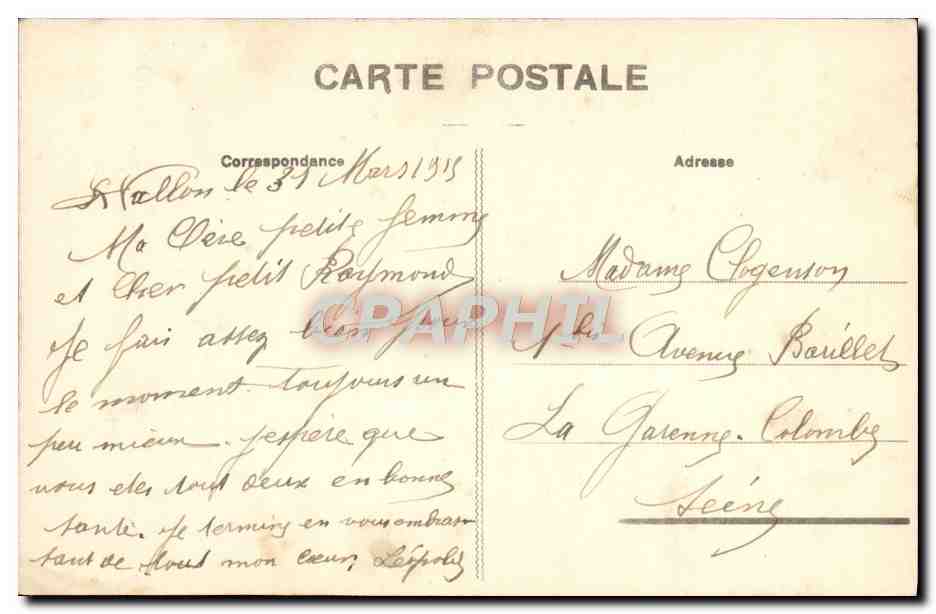 CARTE POSTALE
Correspondance
Adresse
le 31 Mars 1915
Ma Chère petite femme
et Cher petit Raymond
Je fais assez bien pour
le moment. Toujours un
peu mieux. J'espère que
vous etes tout deux en bonne
santé. Je termine en vous embras
sant de tout mon cœur, Léopold
Madame Clogenson
1 bis Avenue Barillet
La Garenne-Colombe
Seine
CPAPHIL